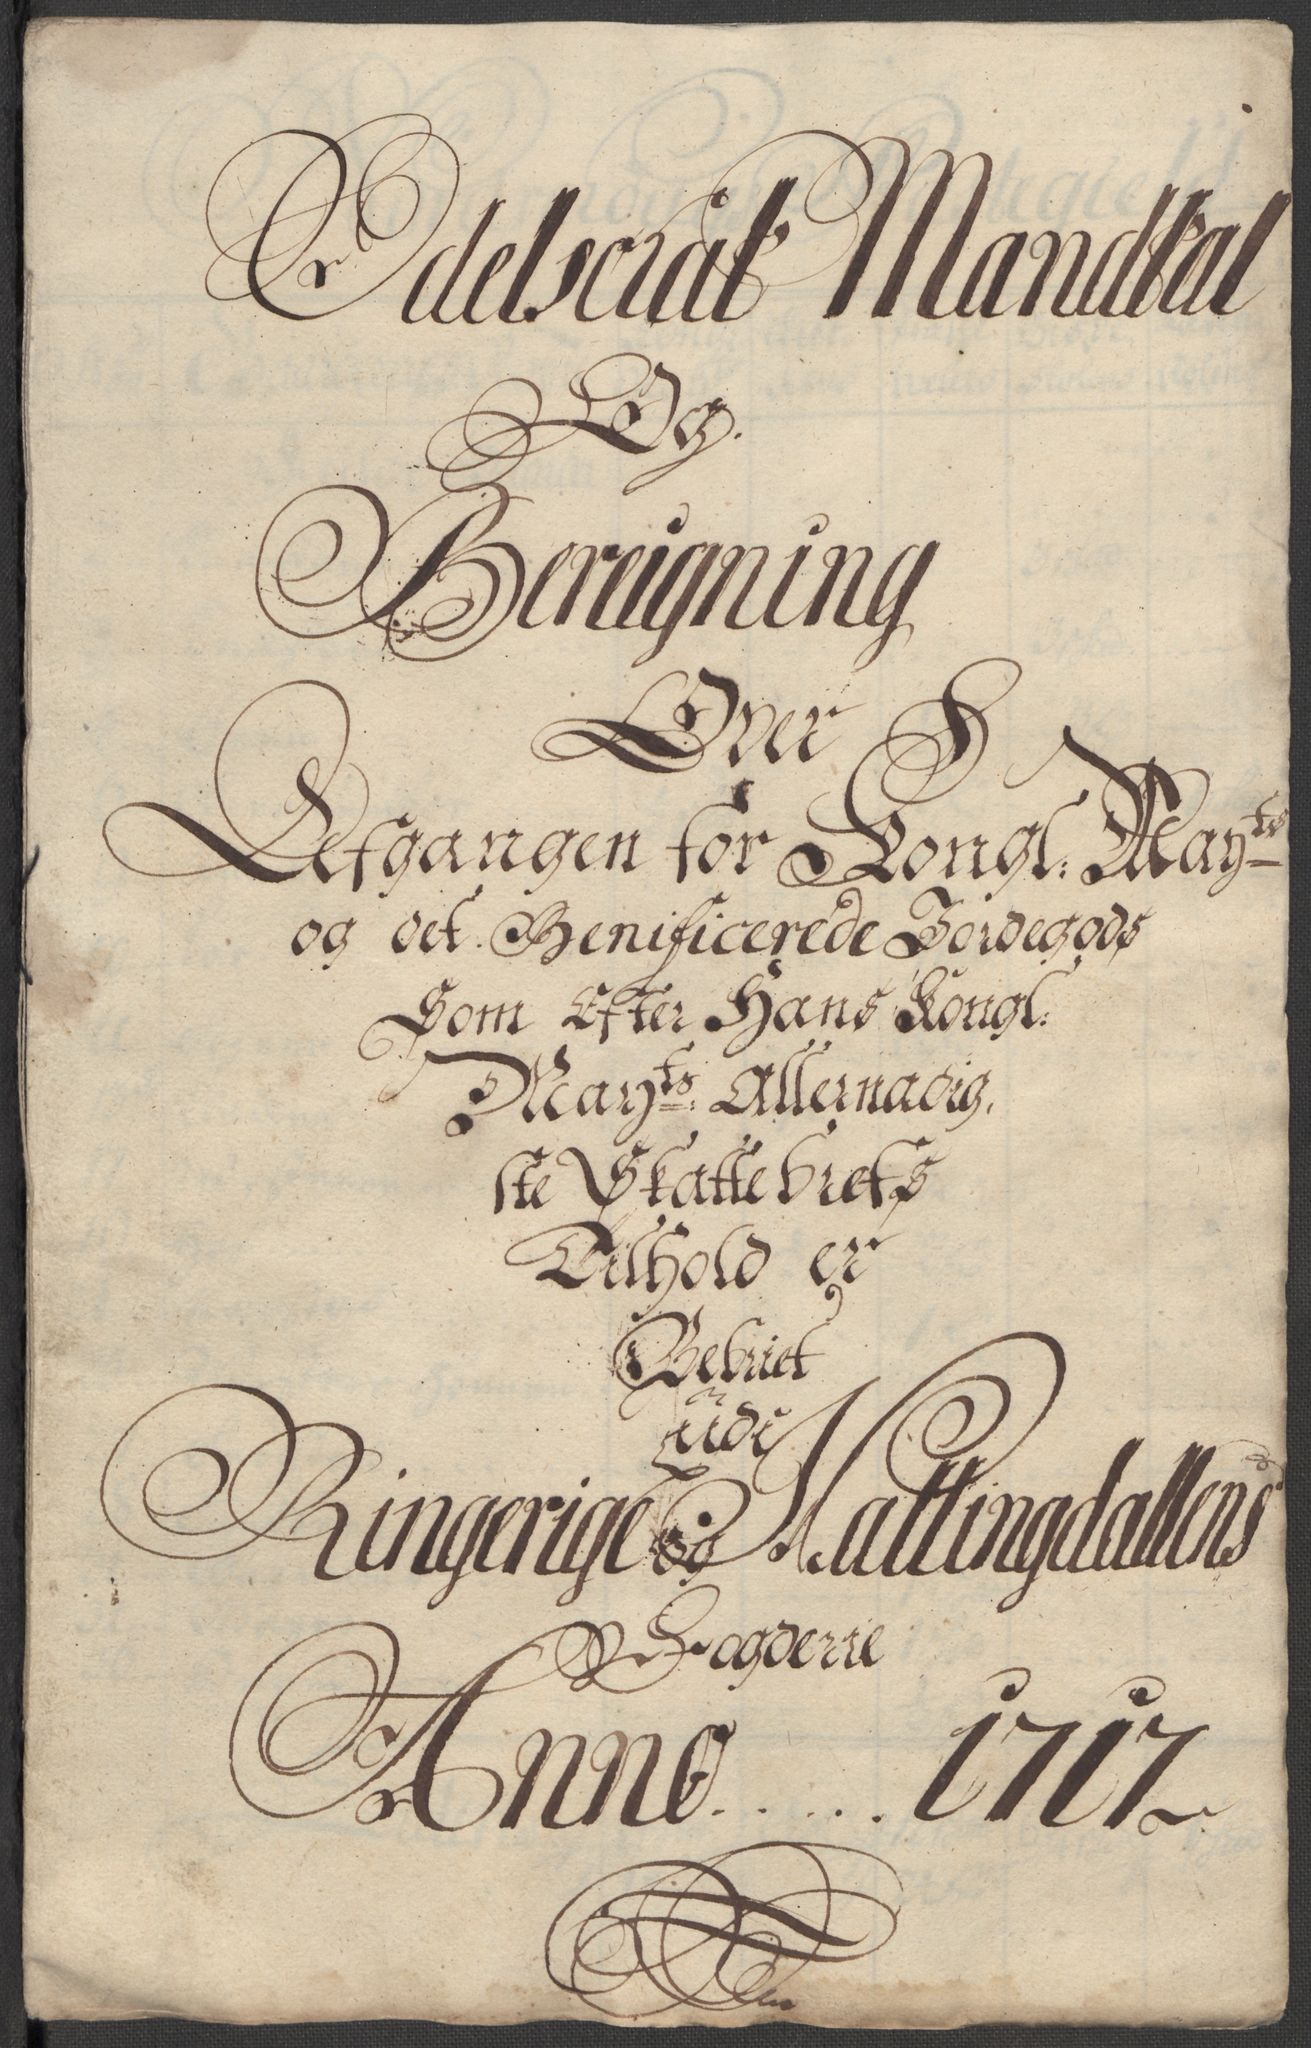 Odelscat Mandtal
Og
Bereigning
Over
Lefgangen for Kongl: Mayts
og det Benificerede Jordegods
Som Efter Hans Kongl:
Mayts: Allernadig,
ste Skatte brefs
Tilhold er
Bebriet
udi
Ringerige og Hallingdallens
Fogderie
Anno . . . . . 1717